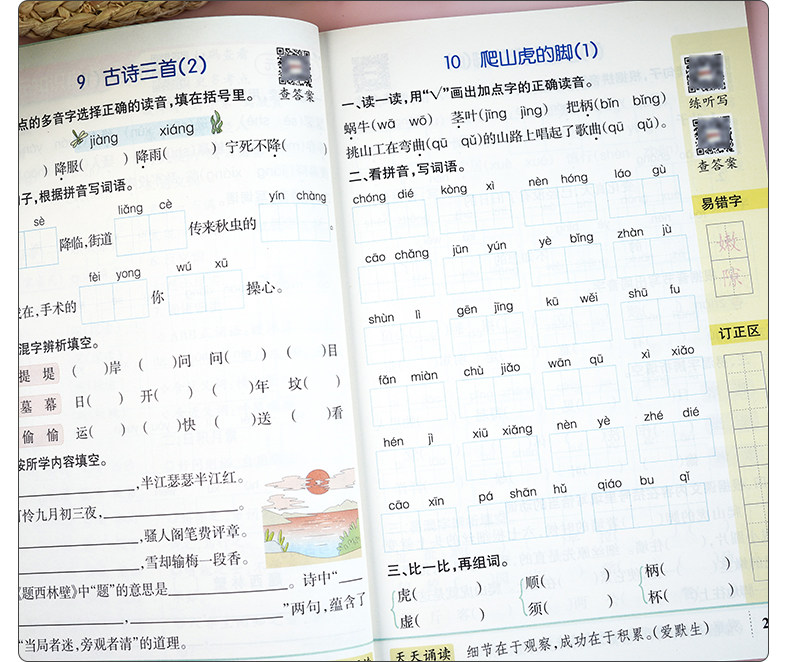 9 古诗三首(2)
查答案
点的多音字选择正确的读音,填在括号里。
jiàng xiáng
) 降服( ) 降雨( ) 宁死不降( )
子,根据拼音写词语。
sè liǎng cè yín chàng
降临,街道 传来秋虫的 。
fèi yong wú xū
在,手术的 你 操心。
混字辨析填空。
提 堤 ( )岸 ( )问 问( ) ( )目
墓 幕 日( ) 开( ) ( )年 坟( )
偷 愉 运( ) ( )快 ( )送 ( )看
按所学内容填空。
,半江瑟瑟半江红。
可怜九月初三夜, 。
,骚人阁笔费评章。
,雪却输梅一段香。
《题西林壁》中“题”的意思是 。诗中“
, ”两句,蕴含了
“当局者迷,旁观者清”的道理。
10 爬山虎的脚(1)
一、读一读,用“√”画出加点字的正确读音。
蜗牛(wā wō) 茎叶(jīng jìng) 把柄(bǐn bǐng)
挑山工在弯曲(qū qǔ)的山路上唱起了歌曲(qū qǔ)。
二、看拼音,写词语。
chóng dié kòng xì nèn hóng láo gù
cāo chǎng jūn yún yè bǐng zhàn jù
shùn lì gēn jīng kū wěi shū fu
fān miàn chù jiǎo wān qū xì xiǎo
hén jì xiū xiǎng nèn yè zhé dié
cāo xīn pá shān hǔ qiáo bu qǐ
三、比一比,再组词。
虎( ) 顺( ) 柄( )
虚( ) 须( ) 杯( )
天天诵读 细节在于观察,成功在于积累。(爱默生)
练听写
查答案
易错字
嫩
隙
订正区
2